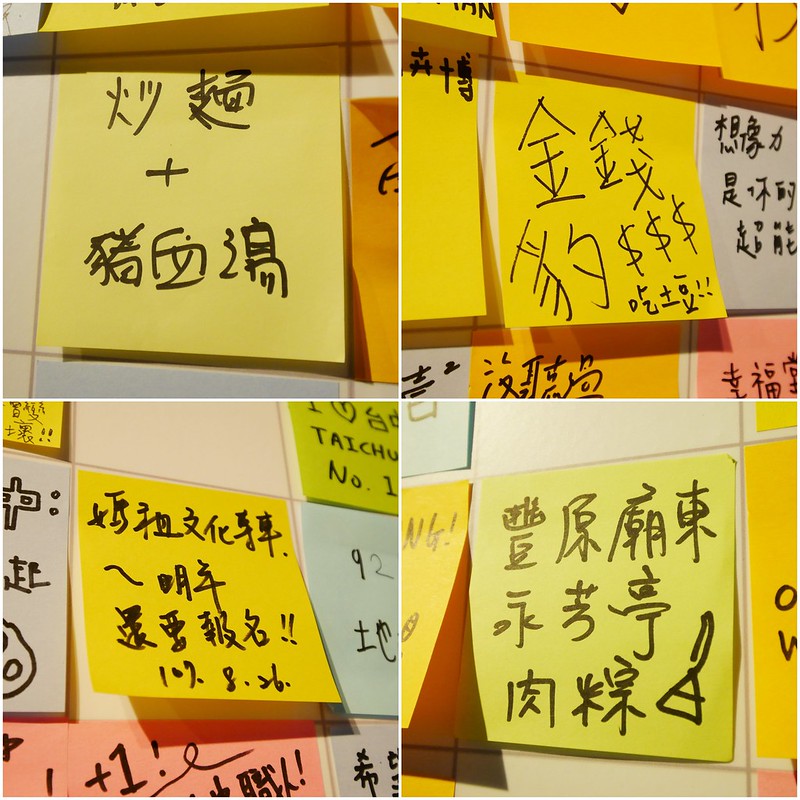 炒麵
+
豬血湯
卉博
金錢
豹$$$
吃土豆!!
想像力
是你的
超能
沒聽過
幸福堂
會變
壞!!
TAICHU
No. 1
媽祖文化專車.
~明年
還要報名!!
107. 8. 26.
起
92
地
+1!
職人!
希望
NG!
豐原廟東
永芳亭
肉粽